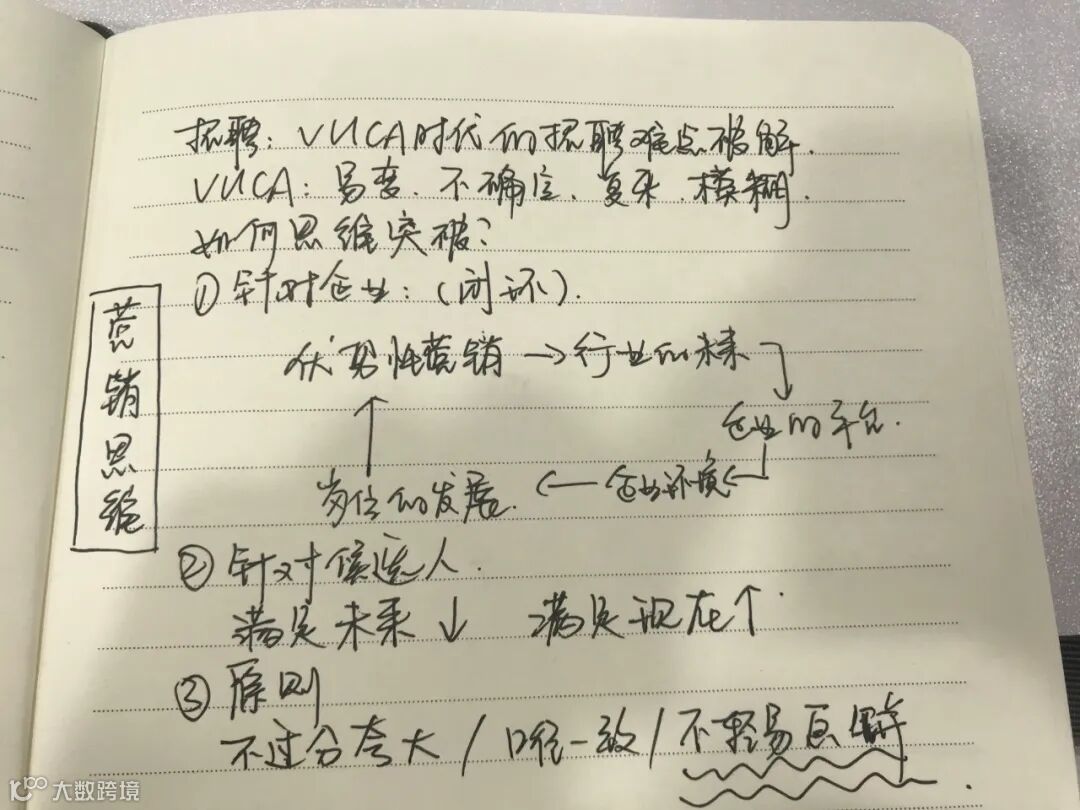 招聘: VUCA时代的招聘难点破解.
VUCA: 易变. 不确定. 复杂. 模糊.
如何思维突破?
①针对企业: (闭环).
营销思维
优势性营销→行业的未来
企业的平台.
岗位的发展. ← 企业环境
②针对候选人.
满足未来↓ 满足现在↑
③原则
不过分夸大/口径一致/不轻易画饼
大数跨境